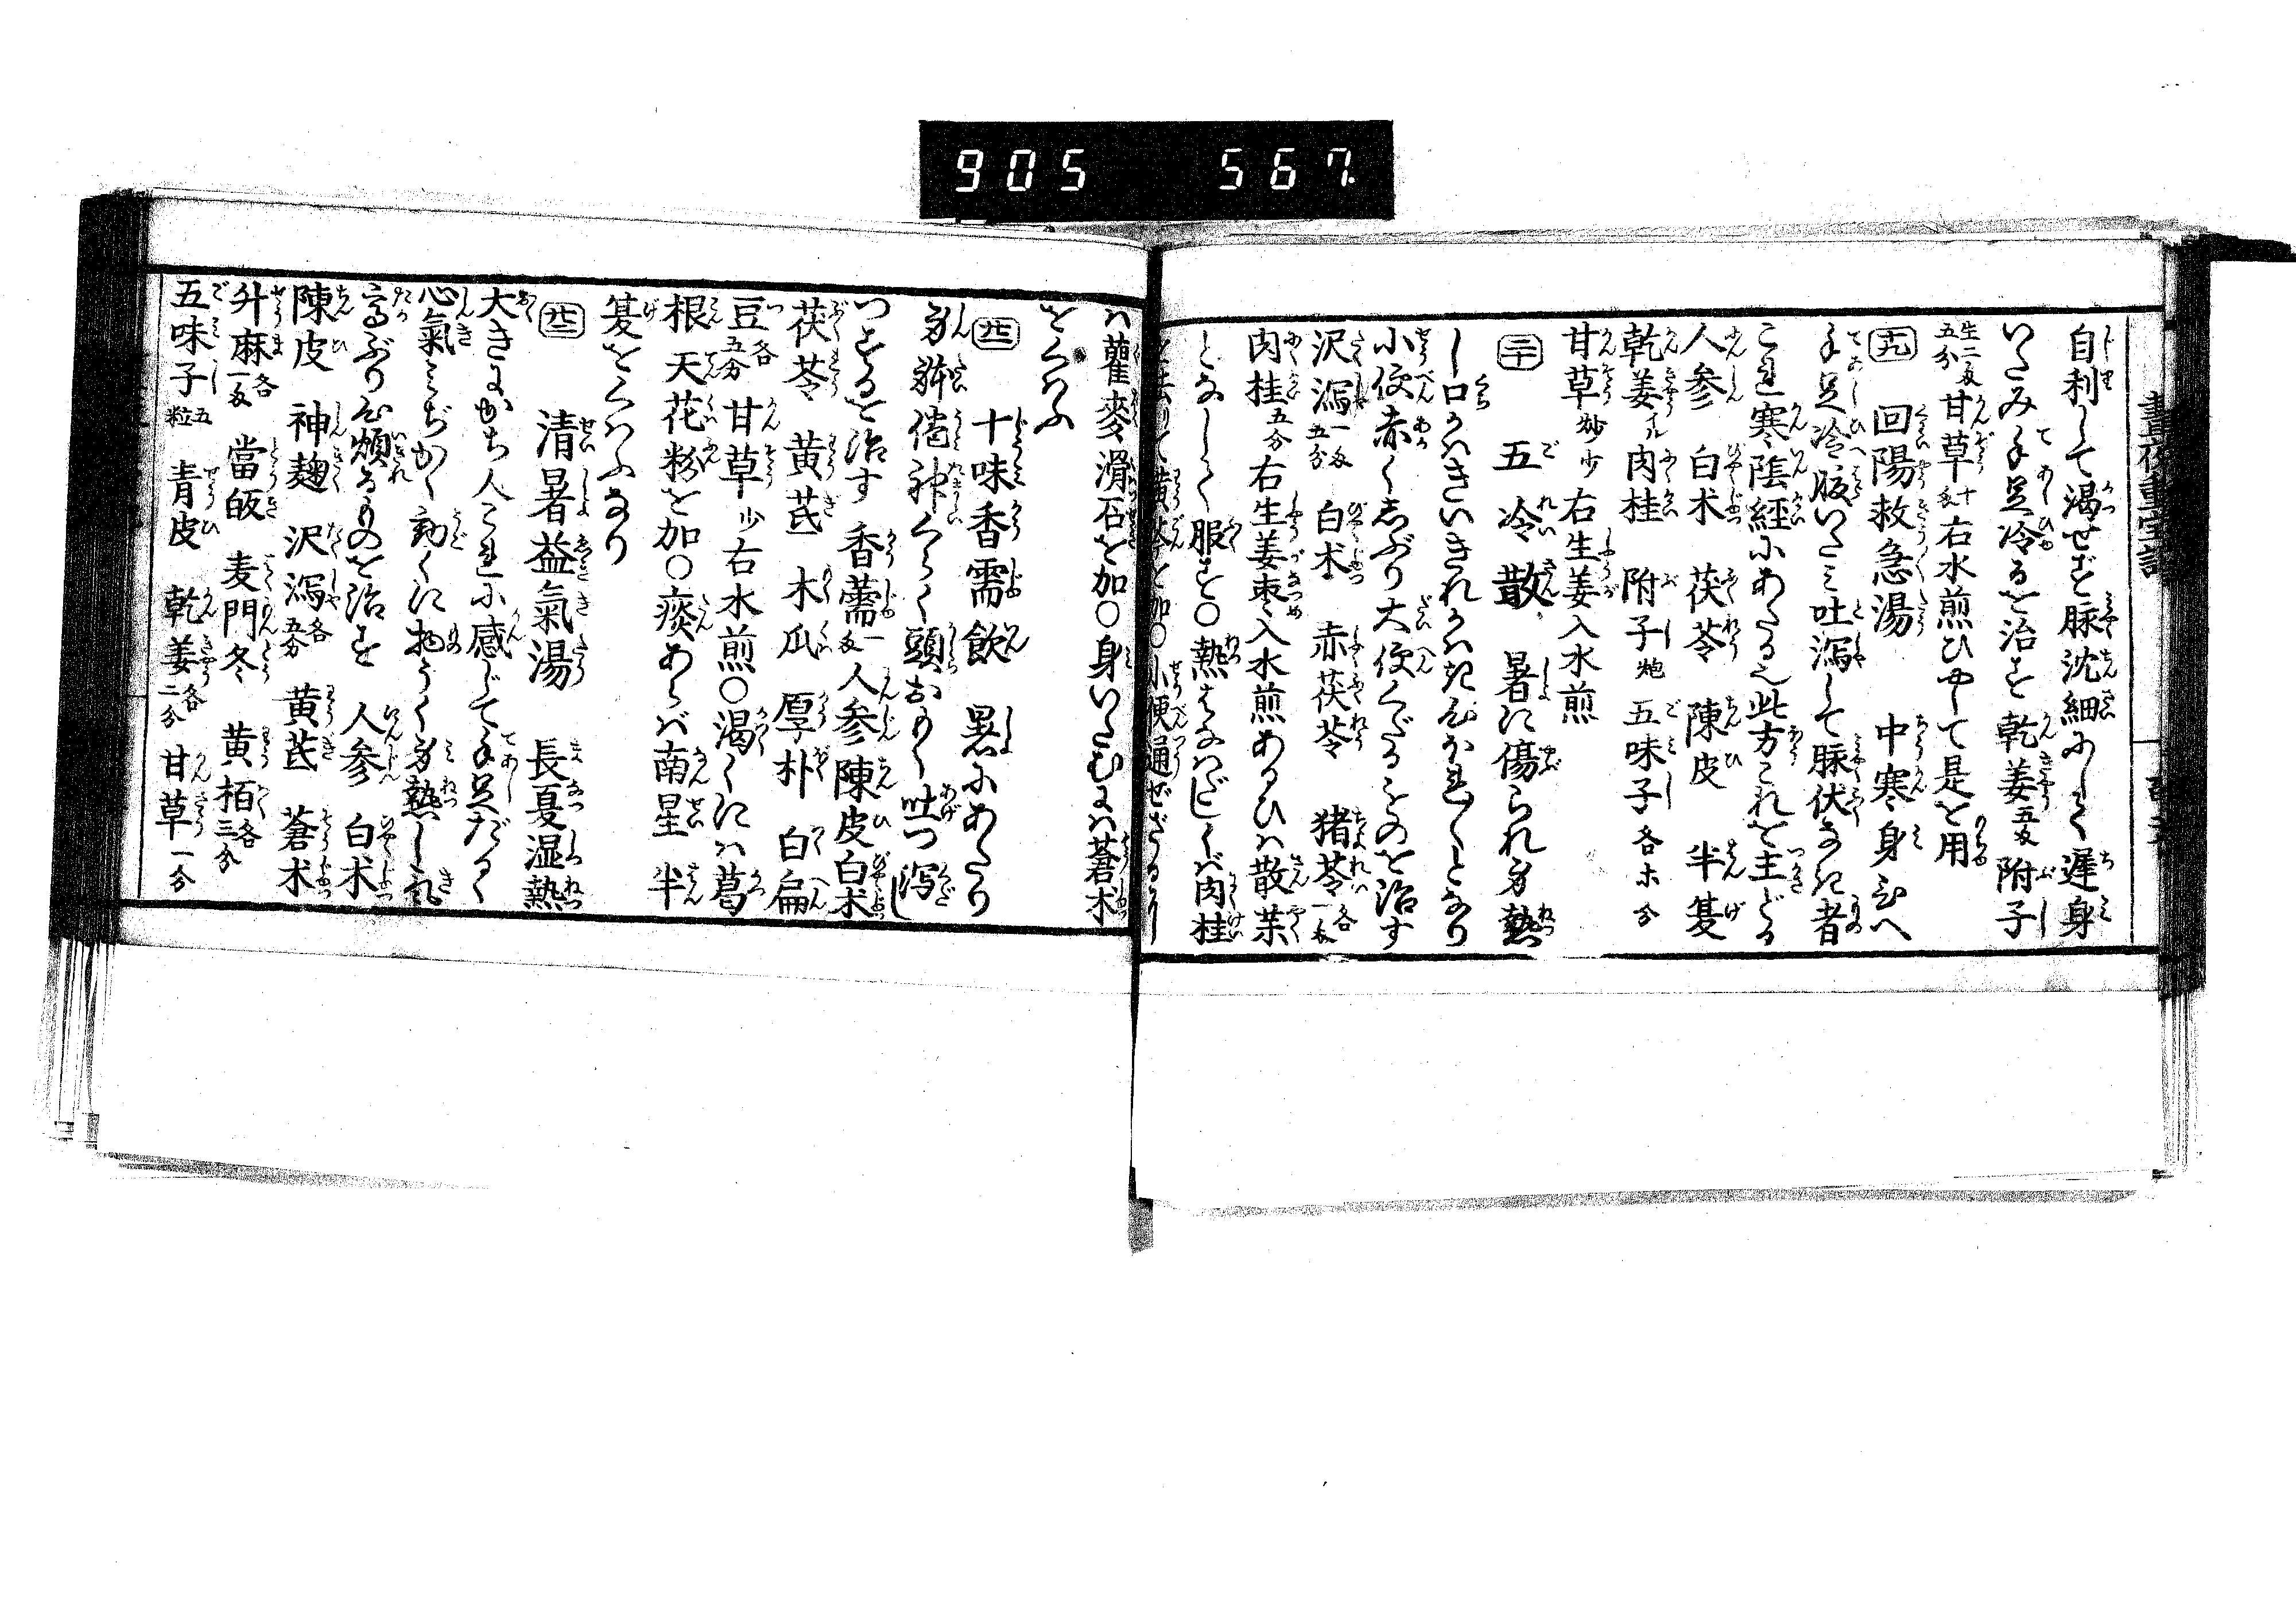 905 567.
自利して渇せず脉沈細にして遅身
いたみ手足冷るを治す 乾姜五匁 附子
生二匁五分 甘草十匁 右水煎ひやして是を用
十九 回陽救急湯 中寒身ひへ
手足冷腹いたミ吐瀉して脉伏なき者
これ寒陰經にあたる也此方これを主どる
人参 白朮 茯苓 陳皮 半夏
乾姜イル 肉桂 附子炮 五味子各ホ分
甘草炒少 右生姜入水煎
二十 五冷散 暑に傷られ身熱
し口かハきいきれ
小便赤くしぶり大便くだるものを治す
沢瀉一匁五分 白朮 赤茯苓 猪苓各一匁
肉桂五分 右生姜棗入水煎あるひハ散薬
となして服す○熱はなハだしくバ肉桂
を去りて黄芩を加○小便通ぜざるに
ハ瞿麥滑石を加○身いたむにハ蒼朮
をくハふ
廿一 十味香需飲 暑にあたり
身躰倦神くらく頭おもく吐つ瀉し
つするを治す 香薷一匁 人参 陳皮 白朮
茯苓 黄芪 木瓜 厚朴 白扁
豆各五分 甘草少 右水煎○渇くにハ葛
根天花粉を加○痰あらバ南星半
夏をくハふるなり
廿二 清暑益氣湯 長夏湿熱
大きにかち人これに感じて手足だるく
心氣ミぢかく動くに物うく身熱し氣
高ぶり煩るものを治す 人参 白朮
陳皮 神麹 沢瀉各五分 黄芪 蒼朮
升麻各一匁 當皈 麦門冬 黄栢各三分
五味子五粒 青皮 乾姜各二分 甘草一分